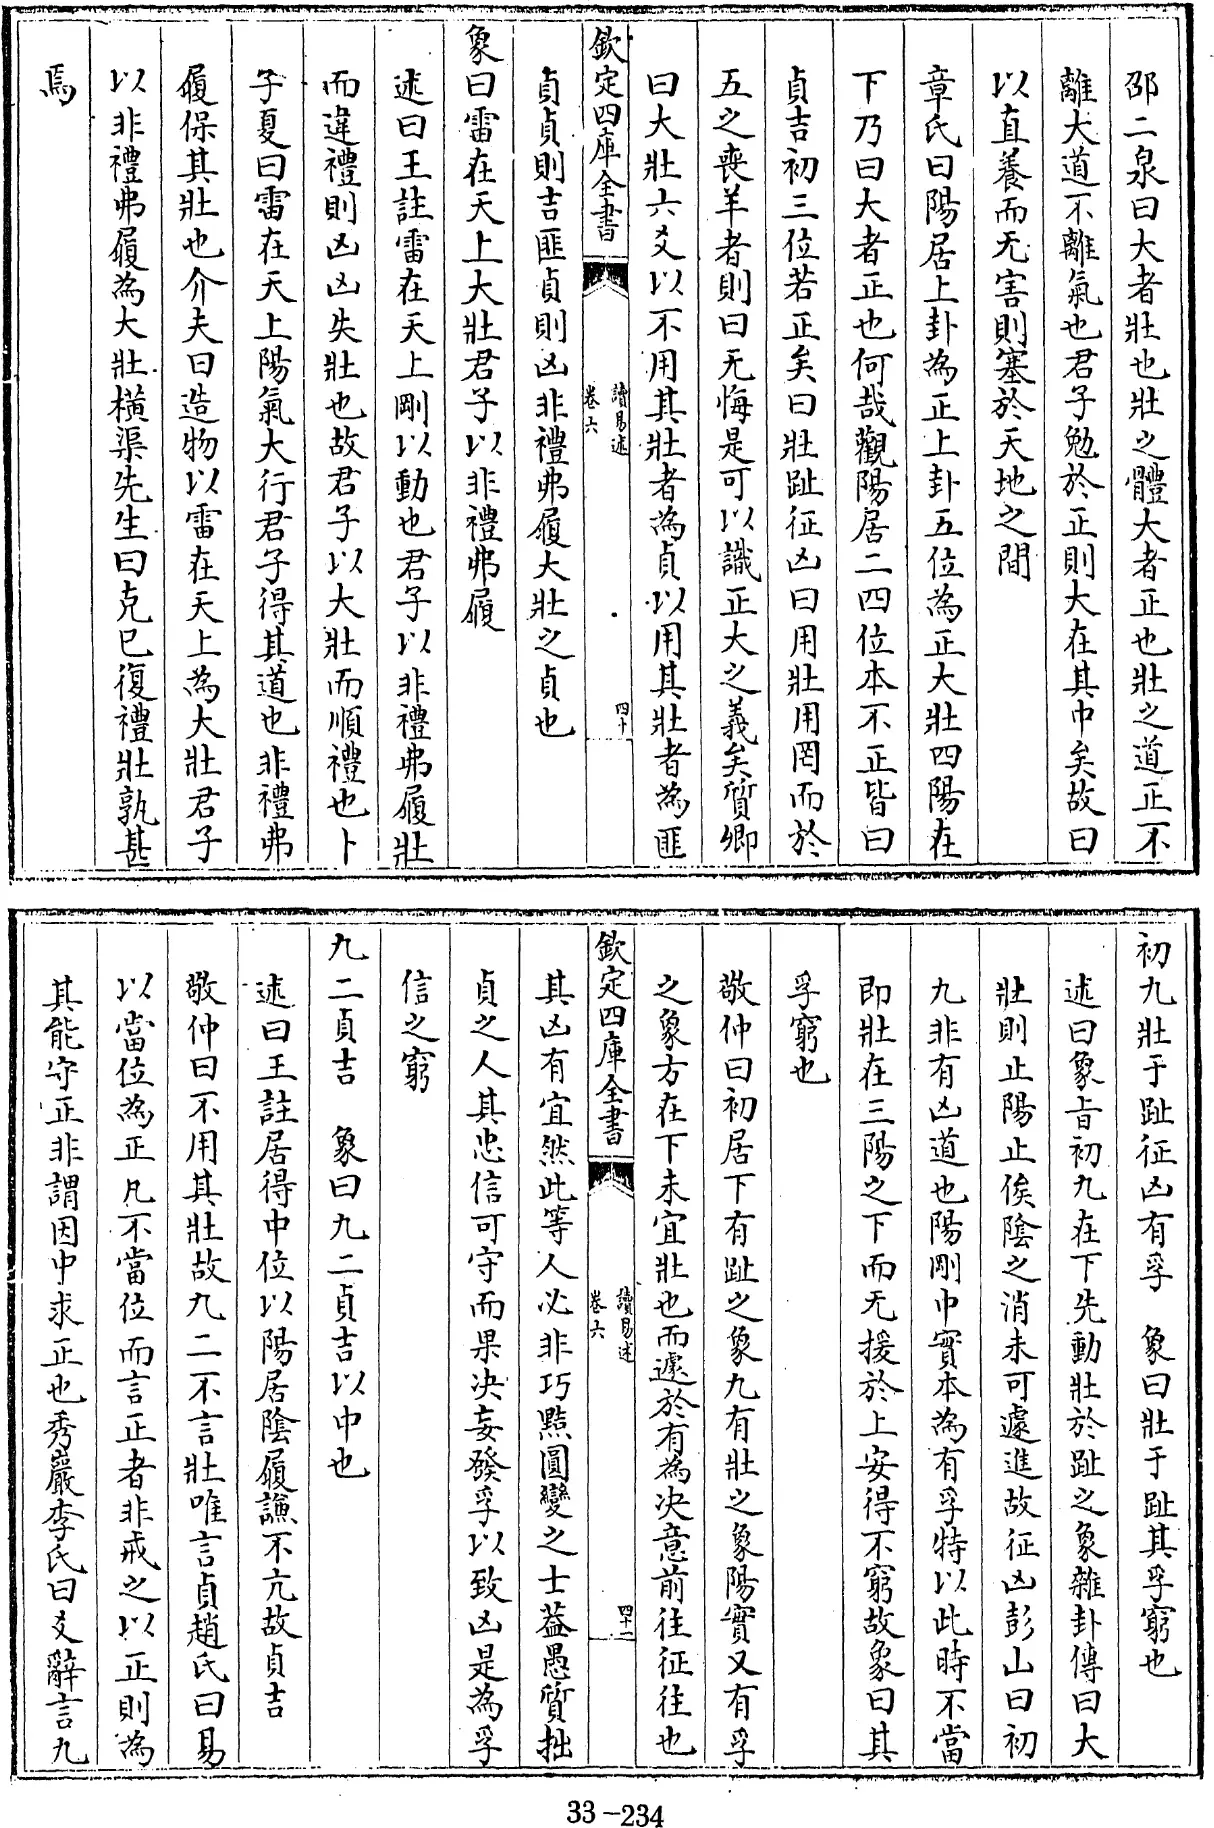 邵二泉曰大者壯也壯之體大者正也壯之道正不
離大道不離氣也君子勉於正則大在其中矣故曰
以直養而无害則塞於天地之間
章氏曰陽居上卦為正上卦五位為正大壯四陽在
下乃曰大者正也何哉觀陽居二四位本不正皆曰
貞吉初三位若正矣曰壯趾征凶曰用壯用罔而於
五之喪羊者則曰无悔是可以識正大之義矣質卿
曰大壯六爻以不用其壯者為貞以用其壯者為匪
欽定四庫全書
讀易述
卷六
四十
貞貞則吉匪貞則凶非禮弗履大壯之貞也
象曰雷在天上大壯君子以非禮弗履
述曰王註雷在天上剛以動也君子以非禮弗履壯
而違禮則凶凶失壯也故君子以大壯而順禮也卜
子夏曰雷在天上陽氣大行君子得其道也非禮弗
履保其壯也介夫曰造物以雷在天上為大壯君子
以非禮弗履為大壯橫渠先生曰克已復禮壯孰甚
焉
初九壯于趾征凶有孚　象曰壯于趾其孚窮也
述曰象旨初九在下先動壯於趾之象雜卦傳曰大
壯則止陽止俟陰之消未可遽進故征凶彭山曰初
九非有凶道也陽剛中實本為有孚特以此時不當
即壯在三陽之下而无援於上安得不窮故象曰其
孚窮也
敬仲曰初居下有趾之象九有壯之象陽實又有孚
之象方在下未宜壯也而遽於有為決意前往征往也
欽定四庫全書
讀易述
卷六
四十一
其凶有宜然此等人必非巧黠圓變之士葢愚質拙
貞之人其忠信可守而果決妄發孚以致凶是為孚
信之窮
九二貞吉　象曰九二貞吉以中也
述曰王註居得中位以陽居陰履謙不亢故貞吉
敬仲曰不用其壯故九二不言壯唯言貞趙氏曰易
以當位為正凡不當位而言正者非戒之以正則為
其能守正非謂因中求正也秀巖李氏曰爻辭言九
33-234